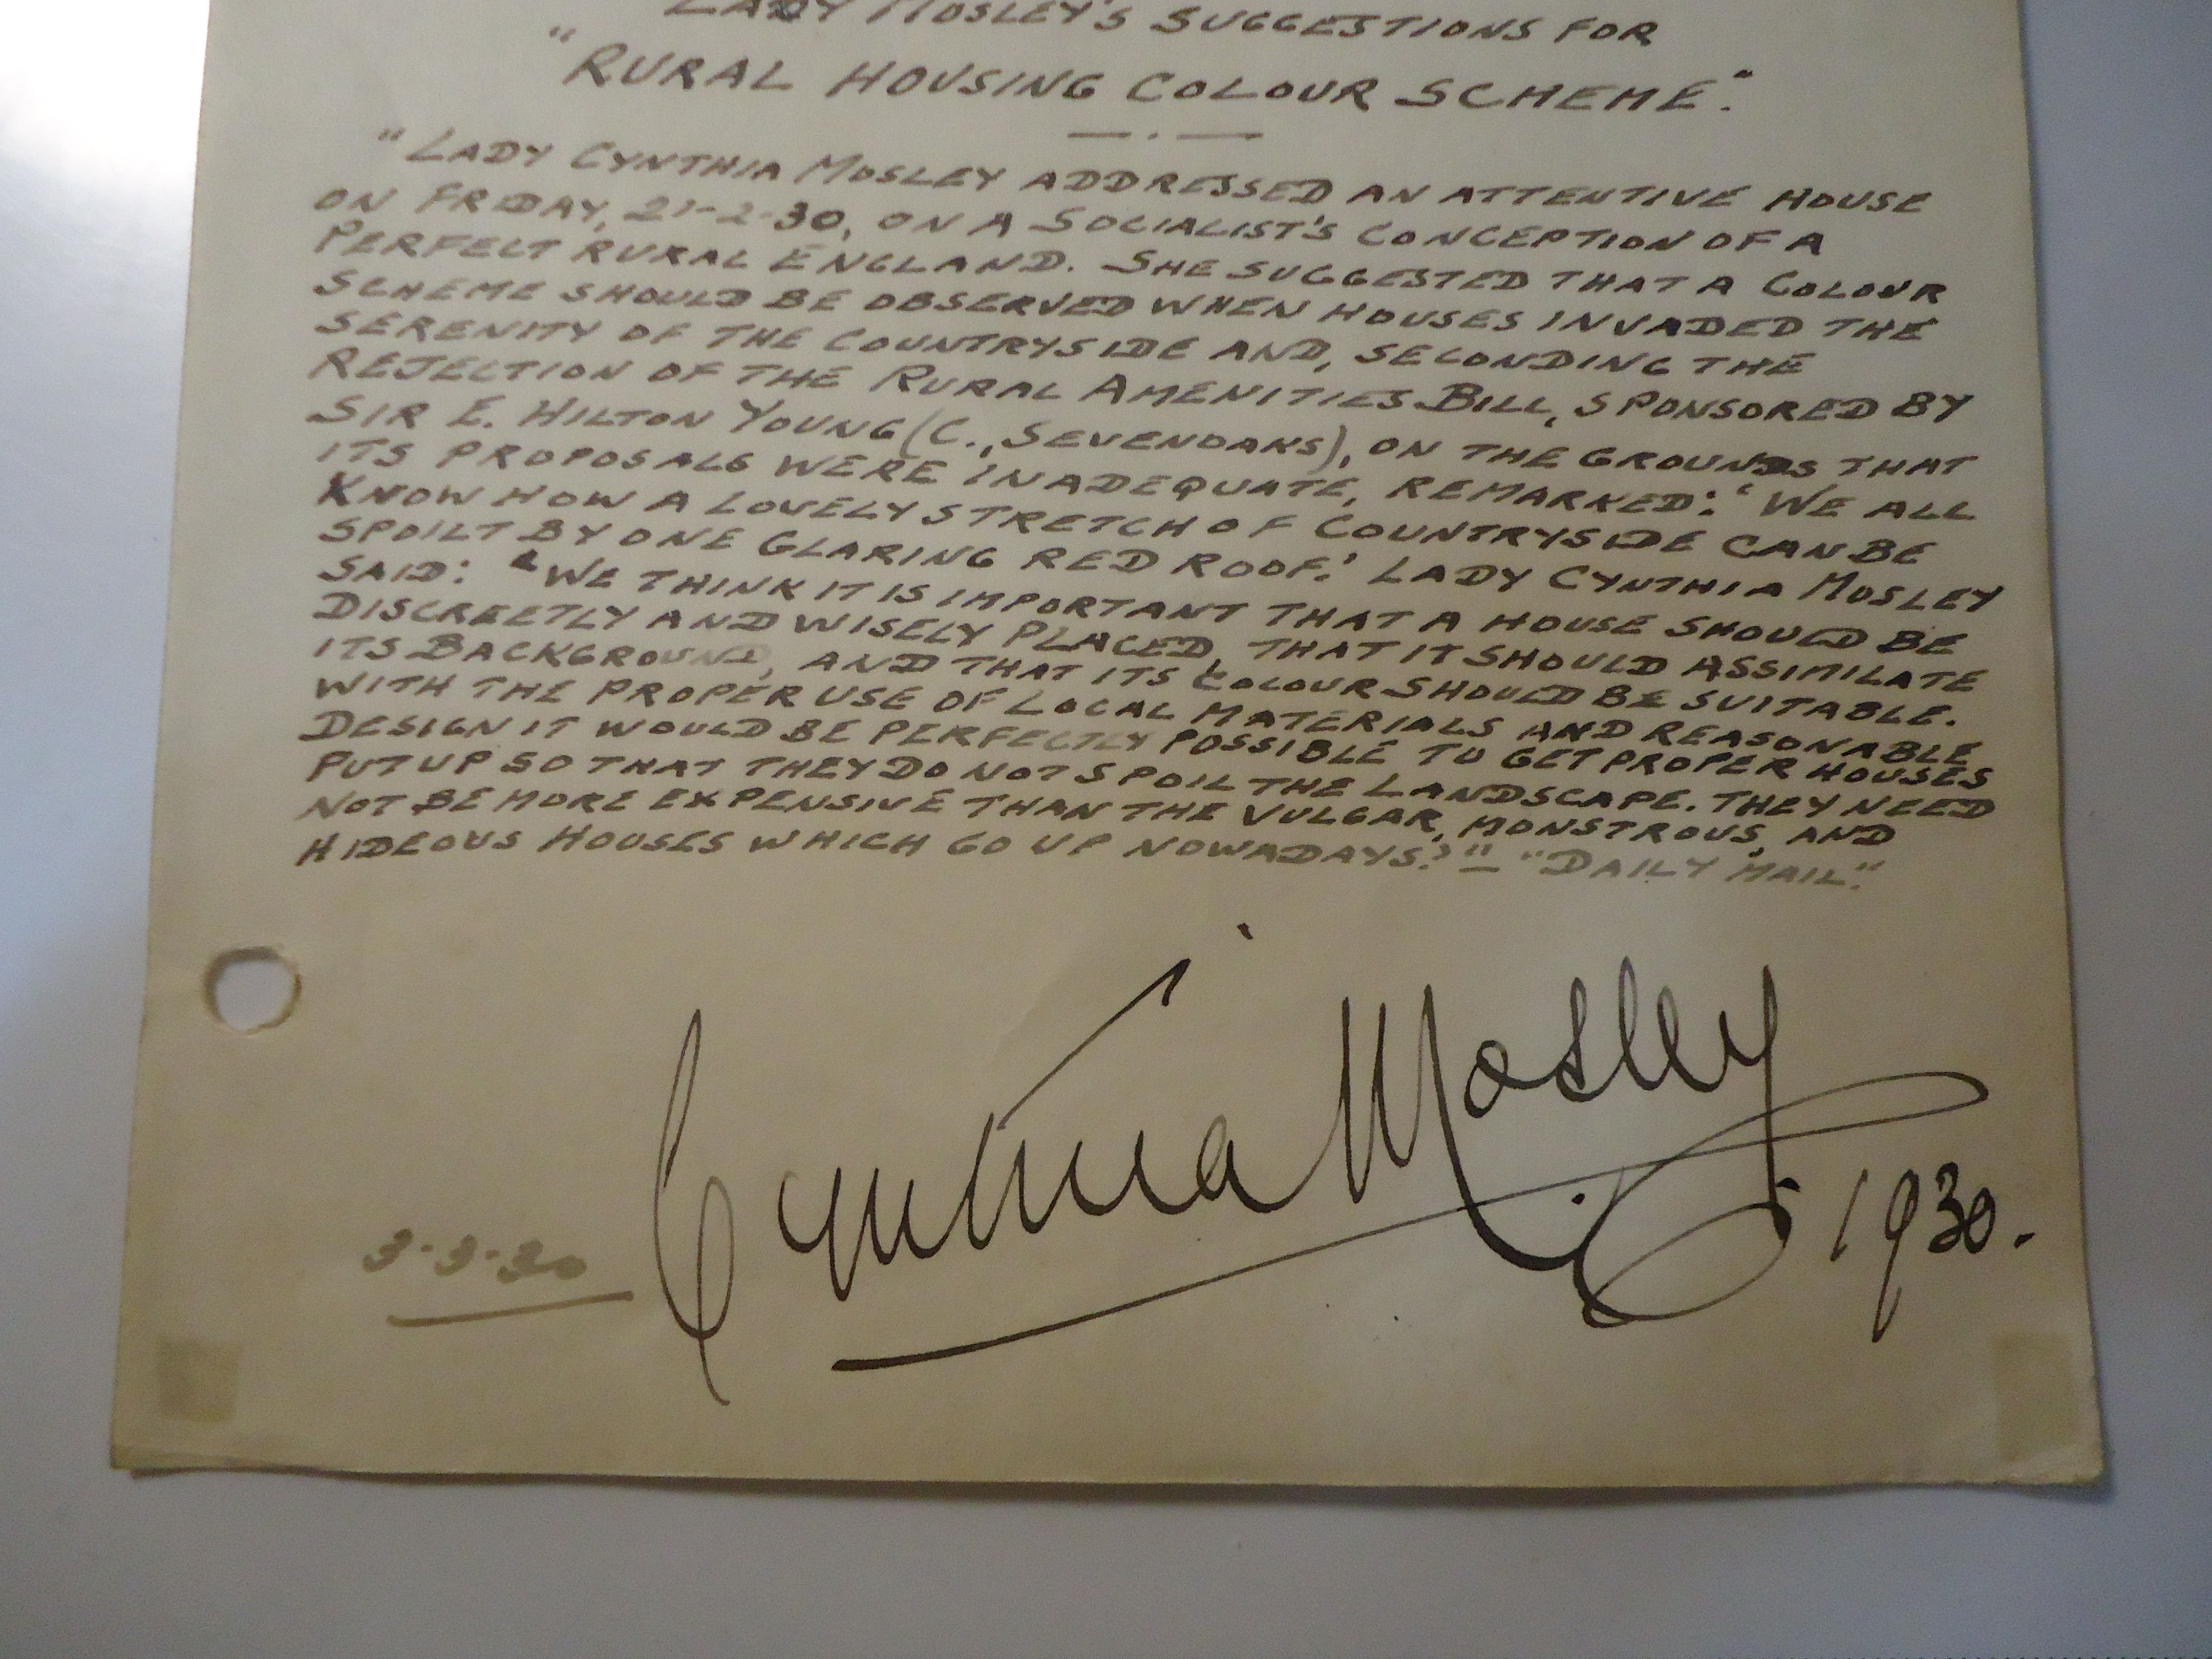 LADY MOSLEY'S SUGGESTIONS FOR
"RURAL HOUSING COLOUR SCHEME".
"LADY CYNTHIA MOSLEY ADDRESSED AN ATTENTIVE HOUSE
ON FRIDAY, 21-2-30, ON A SOCIALIST'S CONCEPTION OF A
PERFECT RURAL ENGLAND. SHE SUGGESTED THAT A COLOUR
SCHEME SHOULD BE OBSERVED WHEN HOUSES INVADED THE
SERENITY OF THE COUNTRYSIDE AND, SECONDING THE
REJECTION OF THE RURAL AMENITIES BILL, SPONSORED BY
SIR E. HILTON YOUNG (C., SEVENOAKS), ON THE GROUNDS THAT
ITS PROPOSALS WERE INADEQUATE, REMARKED: 'WE ALL
KNOW HOW A LOVELY STRETCH OF COUNTRYSIDE CAN BE
SPOILT BY ONE GLARING RED ROOF.' LADY CYNTHIA MOSLEY
SAID: 'WE THINK IT IS IMPORTANT THAT A HOUSE SHOULD BE
DISCREETLY AND WISELY PLACED, THAT IT SHOULD ASSIMILATE
ITS BACKGROUND, AND THAT ITS COLOUR SHOULD BE SUITABLE.
WITH THE PROPER USE OF LOCAL MATERIALS AND REASONABLE
DESIGN IT WOULD BE PERFECTLY POSSIBLE TO GET PROPER HOUSES
PUT UP SO THAT THEY DO NOT SPOIL THE LANDSCAPE. THEY NEED
NOT BE MORE EXPENSIVE THAN THE VULGAR, MONSTROUS, AND
HIDEOUS HOUSES WHICH GO UP NOWADAYS.'" – "DAILY MAIL".
Cynthia Mosley
1930.
3-3-30